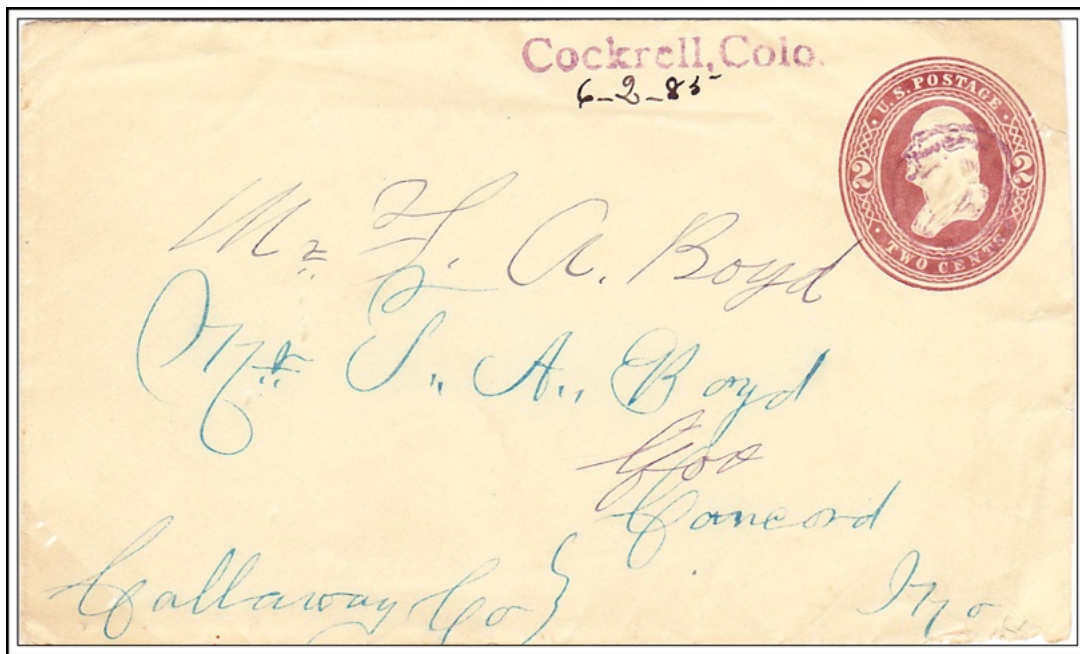 Cockrell, Colo.
6-2-85
U.S. POSTAGE
2 2
TWO CENTS
Mr F. A. Boyd
Mr. T. A. Boyd
Concord
Callaway Co }
Mo